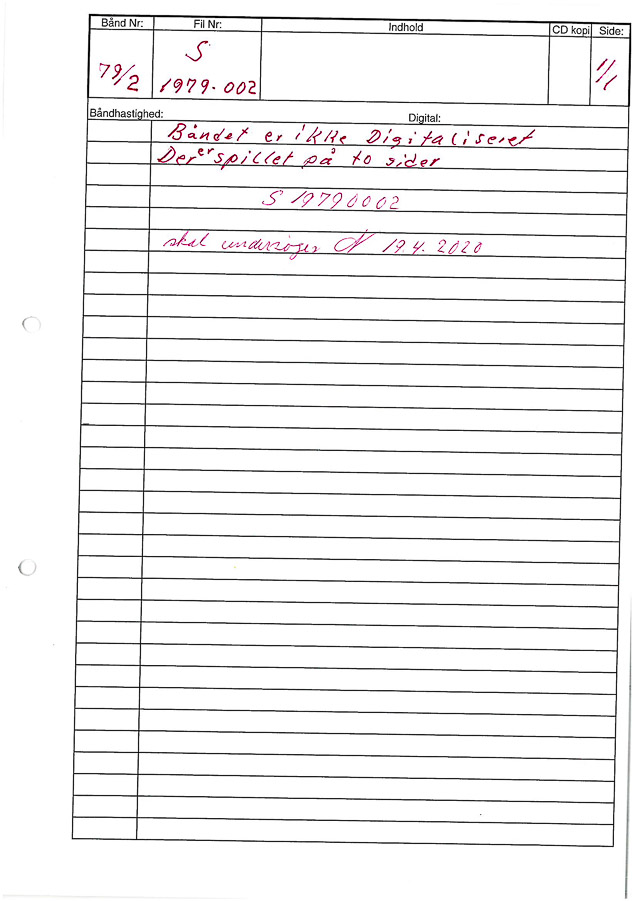 Bånd Nr: Fil Nr: Indhold CD kopi Side:
79/2 S 1979.002 1/1
Båndhastighed: Digital:
Båndet er ikke Digitaliseret
Der er spillet på to sider
S 19790002
skal undersøges 19.4.2020